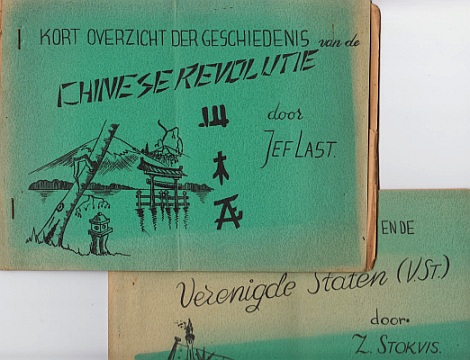 KORT OVERZICHT DER GESCHIEDENIS van de
CHINESE REVOLUTIE
door
JEF LAST.
木
EN DE
Verenigde Staten (V.St.)
door.
Z. STOKVIS.